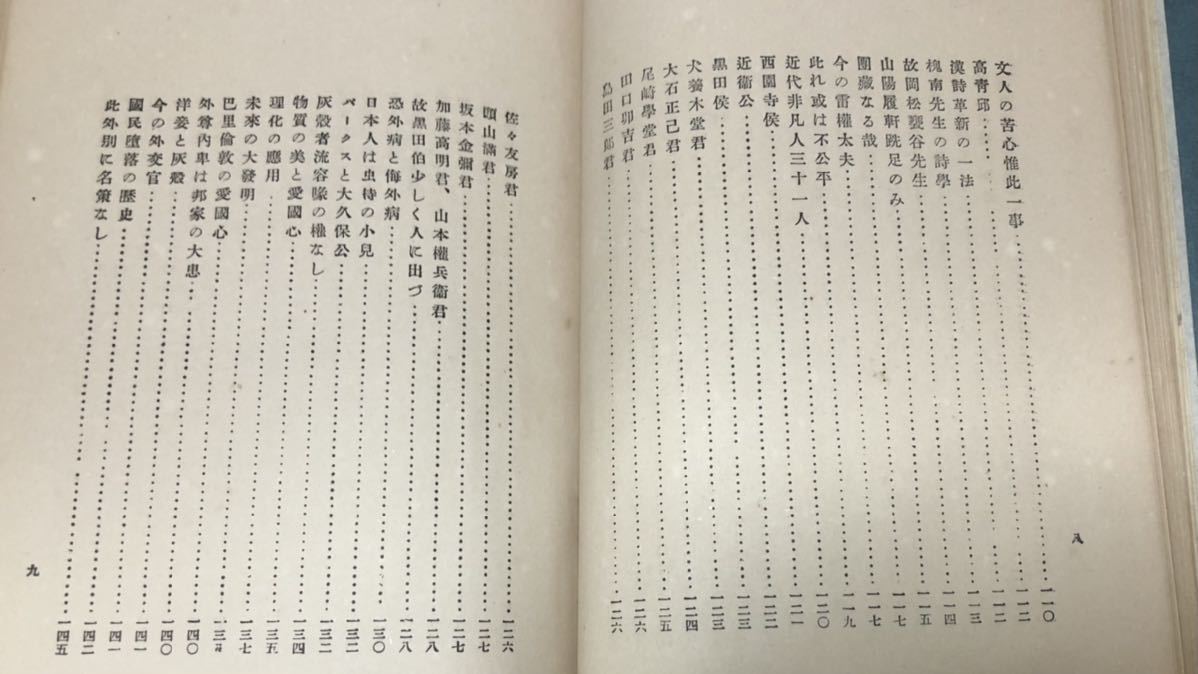 八
文人の苦心惟此一事 一一〇
高靑邱 一一二
漢詩革新の一法 一一二
槐南先生の詩學 一一三
故岡松甕谷先生 一一四
山陽履軒跣足のみ 一一五
團藏なる哉 一一七
今の雷權太夫 一一七
此れ或は不公平 一一九
近代非凡人三十一人 一二〇
西園寺侯 一二一
近衞公 一二二
黒田侯 一二三
犬養木堂君 一二三
大石正己君 一二四
尾崎學堂君 一二五
田口卯吉君 一二六
島田三郎君 一二六
佐々友房君 一二六
頭山滿君 一二七
坂本金彌君 一二七
加藤高明君、山本權兵衞君 一二八
故黒田伯少しく人に出づ 一二八
恐外病と侮外病 一三〇
日本人は虫持の小兒 一三二
パークスと大久保公 一三二
灰殻者流容喙の權なし 一三四
物質の美と愛國心 一三五
理化の應用 一三七
未來の大發明
巴里倫敦の愛國心 一四〇
外尊內卑は邦家の大患 一四〇
洋妾と灰殻 一四一
今の外交官 一四一
國民墮落の歷史 一四二
此外別に名策なし 一四五
九